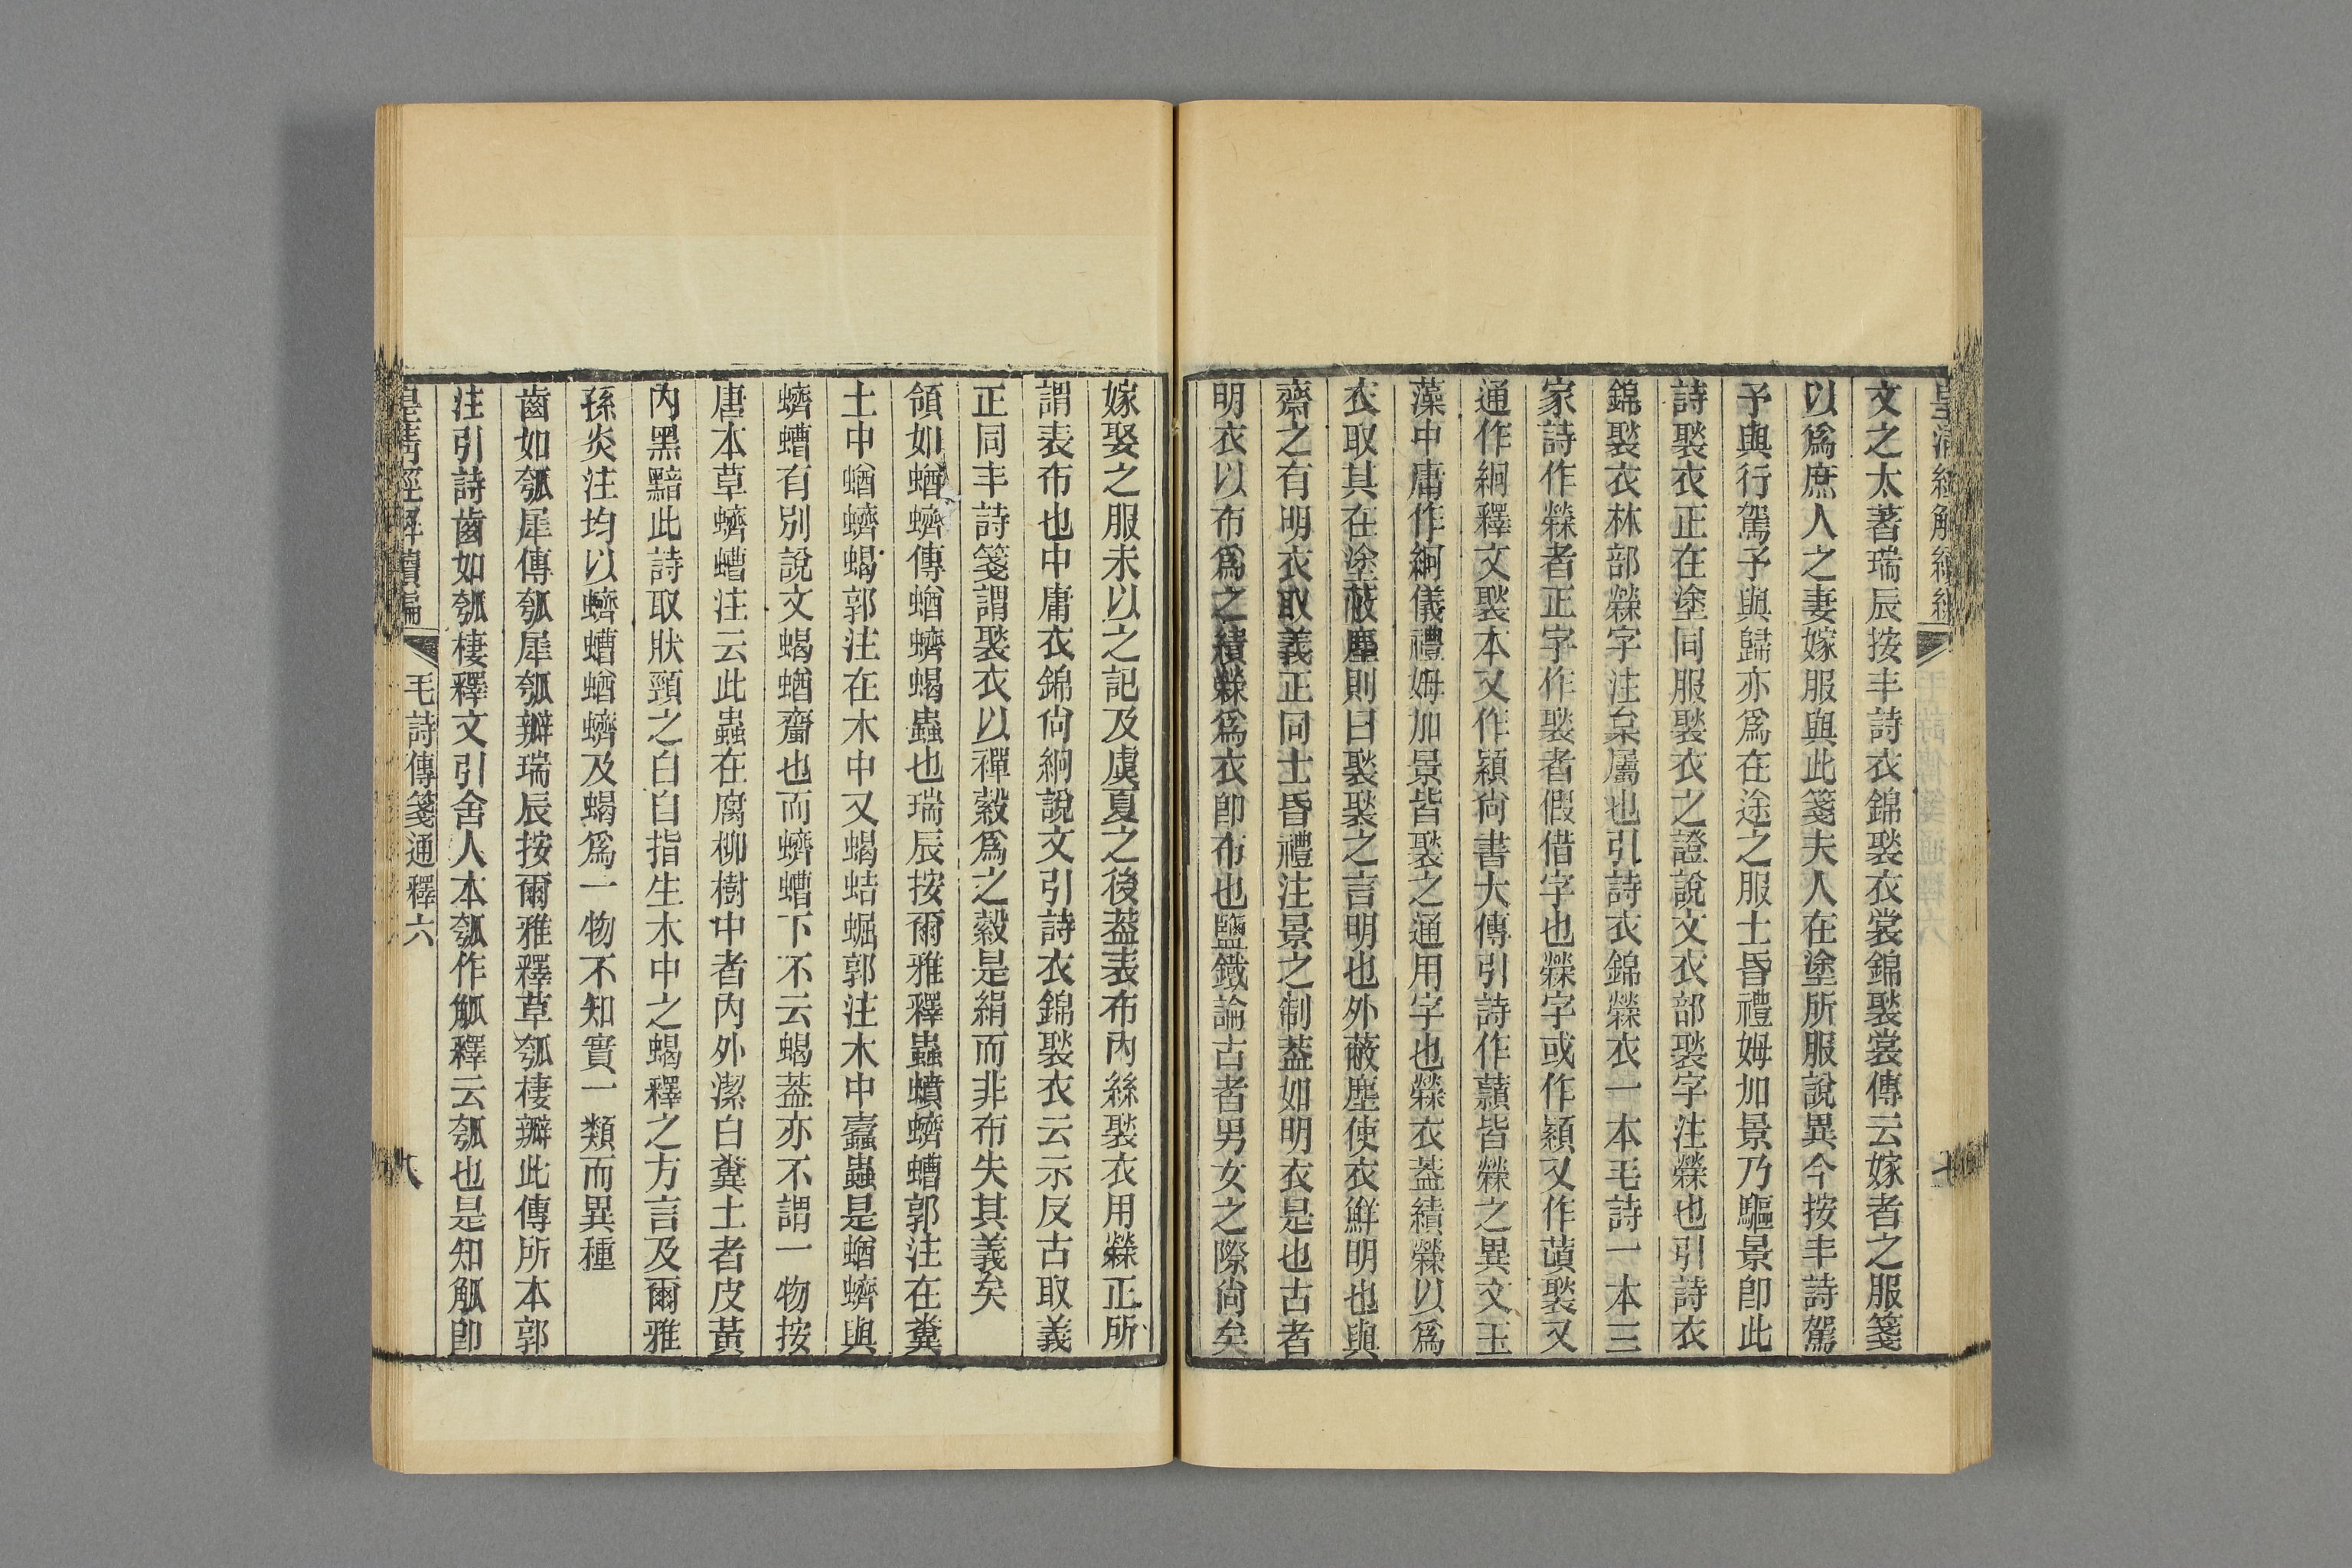 文之太著瑞辰按丰詩衣錦褧衣裳錦褧裳傳云嫁者之服箋
以爲庶人之妻嫁服與此箋夫人在塗所服說異今按丰詩駕
予與行駕予與歸亦爲在途之服士昏禮姆加景乃驅景卽此
詩褧衣正在塗同服褧衣之證說文衣部褧字注檾也引詩衣
錦褧衣林部檾字注枲屬也引詩衣錦檾衣一本毛詩一本三
家詩作檾者正字作褧者假借字也檾字或作潁又作䔛褧又
通作絅釋文褧本又作潁尙書大傳引詩作蘏皆檾之異文玉
藻中庸作絅儀禮姆加景皆褧之通用字也檾衣葢績檾以爲
衣取其在塗蔽塵則曰褧褧之言明也外蔽塵使衣鮮明也與
齋之有明衣取義正同士昏禮注景之制葢如明衣是也古者
明衣以布爲之績檾爲衣卽布也鹽鐵論古者男女之際尙矣
嫁娶之服未以之記及虞夏之後葢表布內絲褧衣用檾正所
謂表布也中庸衣錦尙絅說文引詩衣錦褧衣云示反古取義
正同丰詩箋謂褧衣以襌縠爲之縠是絹而非布失其義矣
領如蝤蠐傳蝤蠐蝎蟲也瑞辰按爾雅釋蟲蟦蠐螬郭注在糞
土中蝤蠐蝎郭注在木中又蝎蛣𧌑郭注木中蠹蟲是蝤蠐與
蠐螬有別說文蝎蝤齏也而蠐螬下不云蝎葢亦不謂一物按
唐本草蠐螬注云此蟲在腐柳樹中者內外潔白糞土者皮黃
內黑黯此詩取狀頸之白自指生木中之蝎釋之方言及爾雅
孫炎注均以蠐螬蝤蠐及蝎爲一物不知實一類而異種
齒如瓠犀傳瓠犀瓠瓣瑞辰按爾雅釋草瓠棲瓣此傳所本郭
注引詩齒如瓠棲釋文引舍人本瓠作觚釋云瓠也是知觚卽
皇淸經解續編 毛詩傳箋通釋六 八